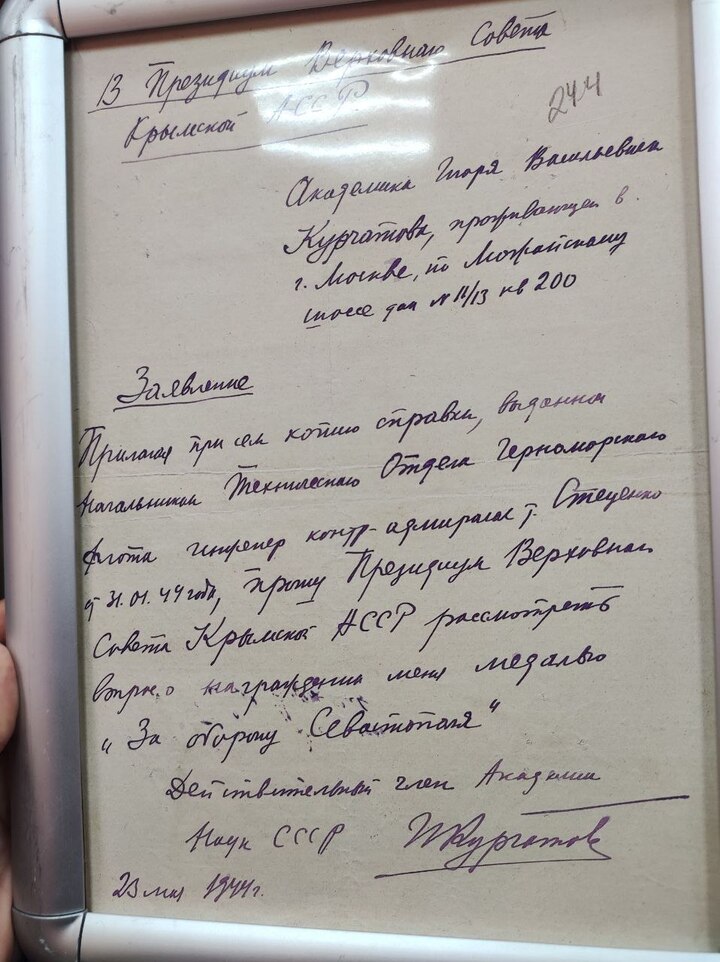 В Президиум Верховного Совета
244
Крымской АССР.
Академика Игоря Васильевича
Курчатова, проживающего в
г. Москве, по Можайскому
шоссе дом № 11/13 кв 200
Заявление
Прилагая при сем копию справки, выданной
Начальником Технического Отдела Черноморского
флота инженер контр-адмиралом т. Стеценко
от 31.01.44 года, прошу Президиум Верховного
Совета Крымской АССР рассмотреть
вопрос о награждении меня медалью
„За оборону Севастополя"
Действительный член Академии
Наук СССР ИКурчатов
23 мая 1944 г.